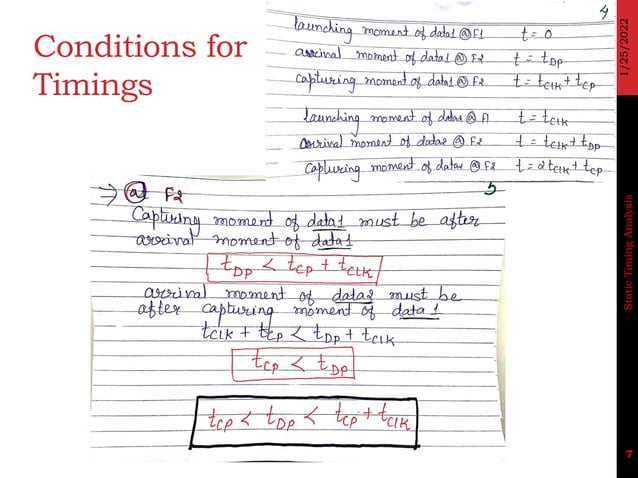 Conditions for
Timings
4
launching moment of data1 @ F1 t = 0
arrival moment of data1 @ F2 t = tDP
capturing moment of data1 @ F2 t = tCLK + tCP
launching moment of data2 @ F1 t = tCLK
arrival moment of data2 @ F2 t = tCLK + tDP
capturing moment of data2 @ F2 t = 2tCLK + tCP
5
→ @ F2
Capturing moment of data1 must be after
arrival moment of data1
tDP < tCP + tCLK
arrival moment of data2 must be
after capturing moment of data 1
tCLK + tCP < tDP + tCLK
tCP < tDP
tCP < tDP < tCP + tCLK
1/25/2022
Static Timing Analysis
7